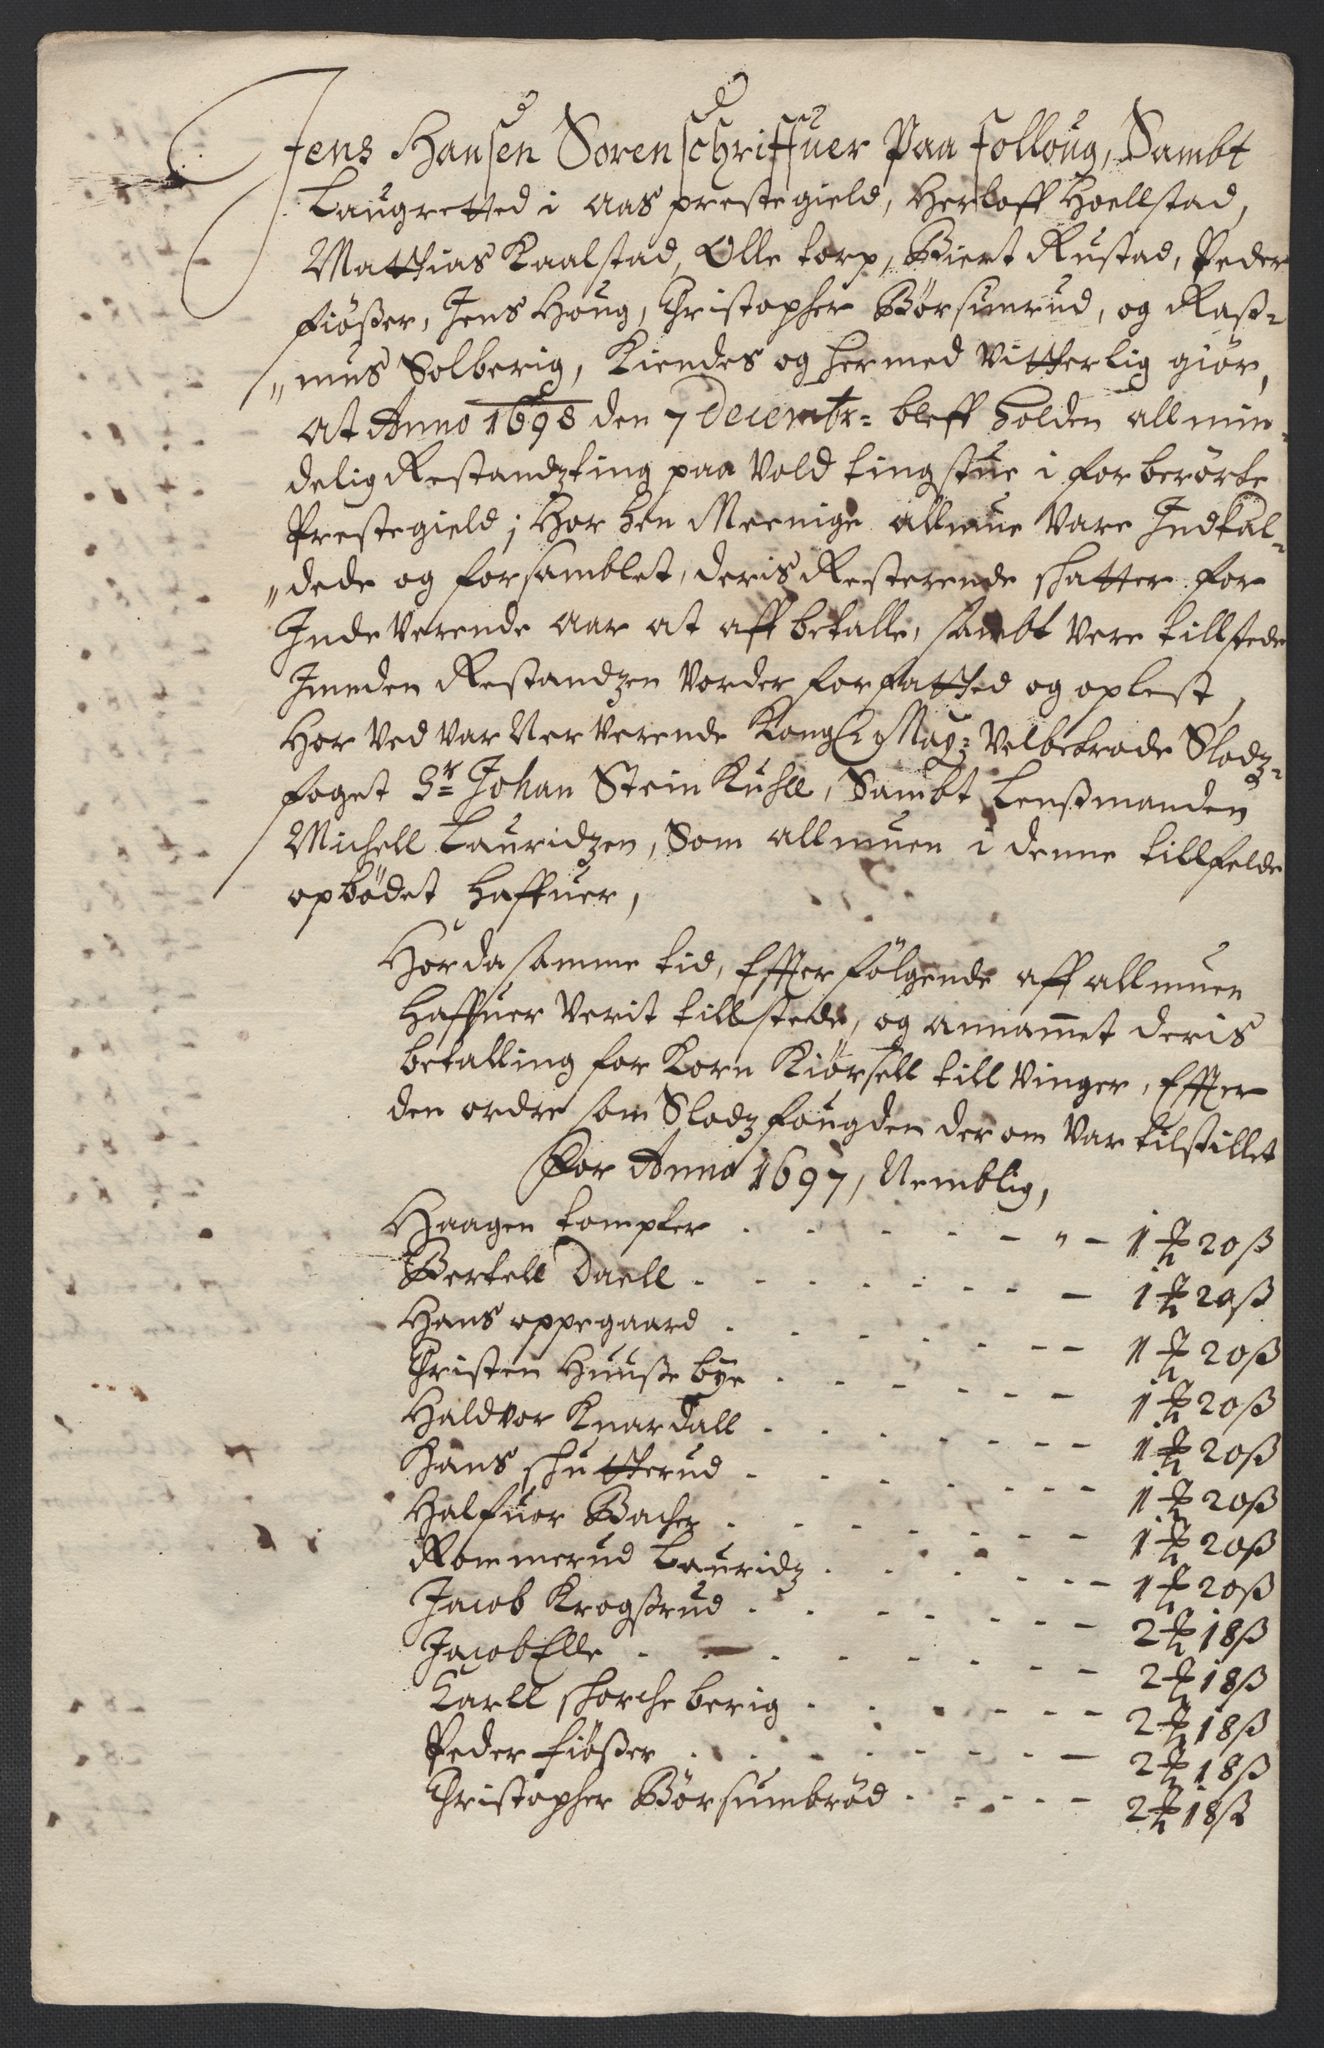 Jens Hansen Sorenschriffuer Paa Folloug, Sambt
Laugretted i Aas prestegield, Herloff Hoellstad,
Matthias Kaalstad, Olle torp, Biert Rustad, Peder
Fiøßer, Jens Houg, Christopher Børsumrud, og Raß-
mus Solberig, Kiendes og hermed Vitterlig giør,
at Anno 1698 den 7 Decembr: bleff holden almin-
delig Restandzting paa Vold tingstue i forberørte
Prestegield; Hor hen Meenige allmue Vare Indkal-
dede og forsamblet, deris Resterende skatter for
Indeverende aar at affbetalle, sambt Vere tillstede
Imeden Restandzen Vorder forfatted og oplest,
Hor Ved Var Nerverende Kongl: May: Velbetrode Slodz-
foget Sr: Johan Stein Kuhll, Sambt Lenßmanden
Michell Lauridzen, Som allmuen i denne tillfelde
opbødet haffuer,
Hor da samme tid, Effterfølgende aff allmuen
haffuer Verit tillstede, og annammet deris
betalling for Korn Kiørsell till Vinger, Effter
den ordre som Slodzfougden der om Var tilstillet
For Anno 1697, Nemblig,
Haagen tompter - 1 rd 20 ß
Bertell Daell - 1 rd 20 ß
Hans oppegaard - 1 rd 20 ß
Christen Huußebye - 1 rd 20 ß
Haldvor Knardall - 1 rd 20 ß
Hans skutterud - 1 rd 20 ß
Halfuor Bacher - 1 rd 20 ß
Rommerud Lauridz - 1 rd 20 ß
Jacob Krogßrud - 2 rd 18 ß
Jacob Elle - 2 rd 18 ß
Karll skorcheberig - 2 rd 18 ß
Peder fiøßer - 2 rd 18 ß
Christopher Børsumbrød - 2 rd 18 ß